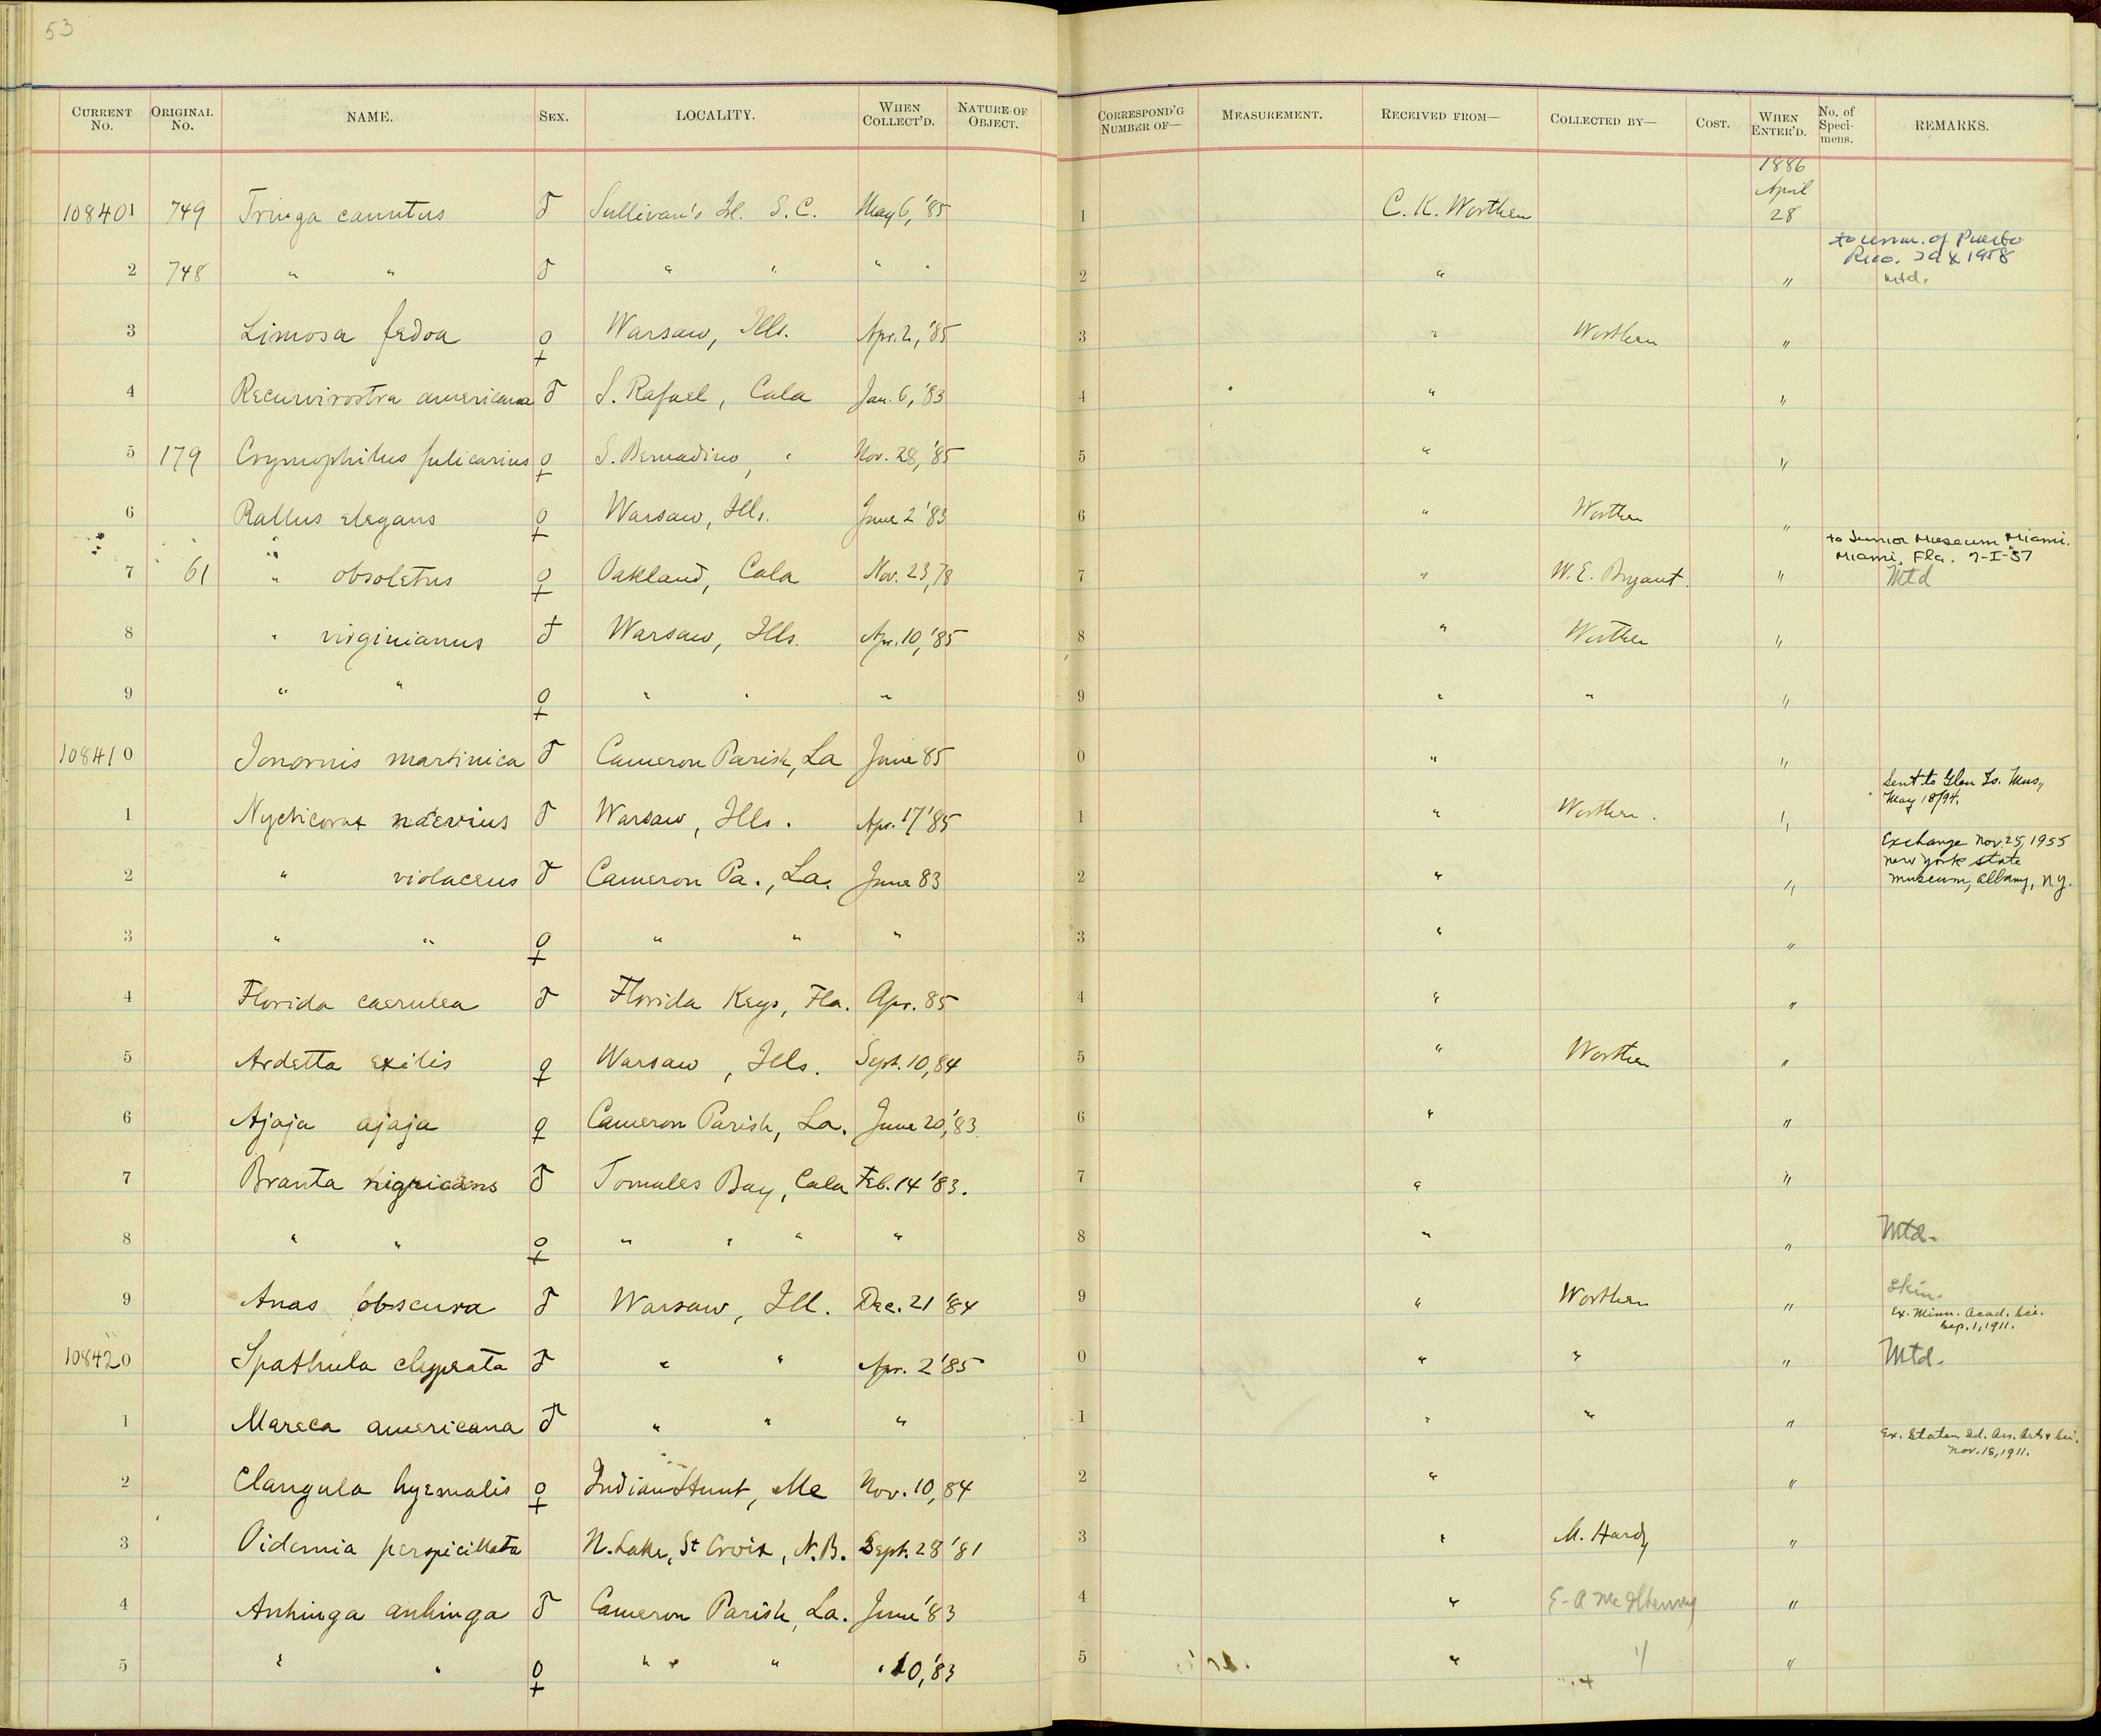 53
CURRENT No. ORIGINAL No. NAME. SEX. LOCALITY. WHEN COLLECT'D. NATURE OF OBJECT. CORRESPOND'G NUMBER OF— MEASUREMENT. RECEIVED FROM— COLLECTED BY— COST. WHEN ENTER'D. No. of Specimens. REMARKS.
1886
April
108401 749 Tringa canutus ♂ Sullivan's Isl. S.C. May 6, '85 1 C. K. Worthen 28
to Univ. of Puerto
Rico.
2 748 " " ♂ " " " " 2 " " Mtd.
3 Limosa fedoa ♀ Warsaw, Ills. Apr. 2, '85 3 " Worthen "
4 Recurvirostra americana ♂ S. Rafael, Cala Jan. 6, '83 4 " "
5 179 Crymophilus fulicarius ♀ S. Bernadino, " Nov. 28, '85 5 " "
6 Rallus elegans ♀ Warsaw, Ills. June 2 '83 6 " Worthen "
to Junior Museum Miami.
Miami, Fla. 7-I-57
7 61 " obsoletus ♀ Oakland, Cala Nov. 23, 78 7 " W. E. Bryant. " Mtd
8 " virginianus ♂ Warsaw, Ills. Apr. 10, '85 8 " Worthen "
9 " " ♀ " " " 9 " " "
108410 Ionornis martinica ♂ Cameron Parish, La June 85 0 " "
Sent to Glen Is. Mus.,
May 18/94.
1 Nycticorax naevius ♂ Warsaw, Ills. Apr. 17 '85 1 " Worthen. "
Exchange Nov. 25, 1955
New York State
2 " violaceus ♂ Cameron Pa., La. June 83 2 " " Museum, Albany, N.Y.
3 " " ♀ " " " 3 " "
4 Florida caerulea ♂ Florida Keys, Fla. Apr. 85 4 " "
5 Ardetta exilis ♀ Warsaw, Ills. Sept. 10, 84 5 " Worthen "
6 Ajaja ajaja ♀ Cameron Parish, La. June 20, '83 6 " "
7 Branta nigricans ♂ Tomales Bay, Cala Feb. 14 '83. 7 " "
8 " " ♀ " " " " 8 " " Mtd.
9 Anas obscura ♂ Warsaw, Ill. Dec. 21 '84 9 " Worthen " Skin.
Ex. Minn. Acad. Sci.
Sep. 1, 1911.
108420 Spathula clypeata ♂ " " Apr. 2 '85 0 " " " Mtd.
1 Mareca americana ♂ " " " 1 " " "
Ex. Staten Id. Ass. Arts & Sci.
Nov. 18, 1911.
2 Clangula hyemalis ♀ Indian Hunt, Me Nov. 10, 84 2 " "
3 Oidemia perspicillata N. Lake, St Croix, N.B. Sept. 28 '81 3 " M. Hardy "
4 Anhinga anhinga ♂ Cameron Parish, La. June '83 4 " E. A McIlhenny "
5 " " ♀ " " " " 10, '83 5 " " "